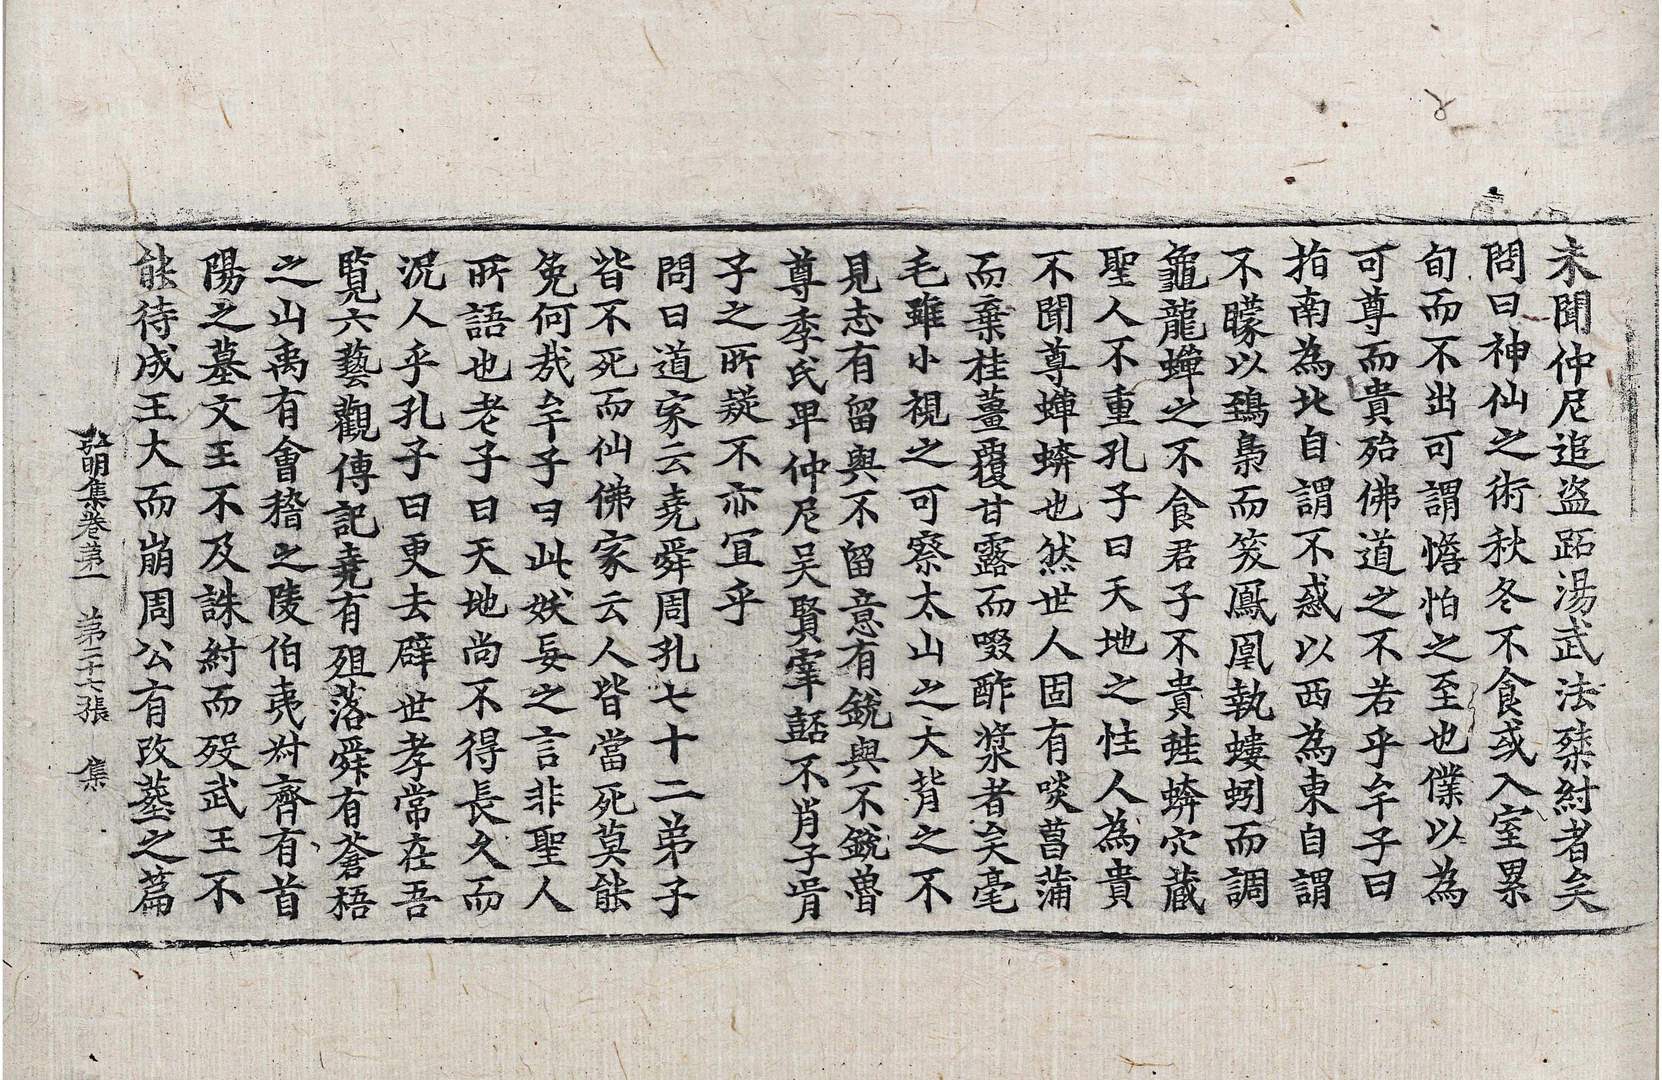 未聞仲尼追盜跖湯武法桀紂者矣
問曰神仙之術秋冬不食或入室累
旬而不出可謂憺怕之至也僕以為
可尊而貴殆佛道之不若乎牟子曰
指南為北自謂不惑以西為東自謂
不矇以鵄梟而笑鳳凰執螻蚓而調
龜龍蟬之不食君子不貴蛙蟒穴藏
聖人不重孔子曰天地之性人為貴
不聞尊蟬蟒也然世人固有啖菖蒲
而棄桂薑覆甘露而啜酢漿者矣毫
毛雖小視之可察太山之大背之不
見志有留與不留意有銳與不銳魯
尊季氏卑仲尼吳賢宰嚭不肖子胥
子之所疑不亦宜乎
問曰道家云堯舜周孔七十二弟子
皆不死而仙佛家云人皆當死莫能
免何哉牟子曰此妖妄之言非聖人
所語也老子曰天地尚不得長久而
況人乎孔子曰更去辟世孝常在吾
覽六藝觀傳記堯有殂落舜有蒼梧
之山禹有會稽之陵伯夷叔齊有首
陽之墓文王不及誅紂而歿武王不
能待成王大而崩周公有改葬之篇
弘明集卷第一　第二十七張　集